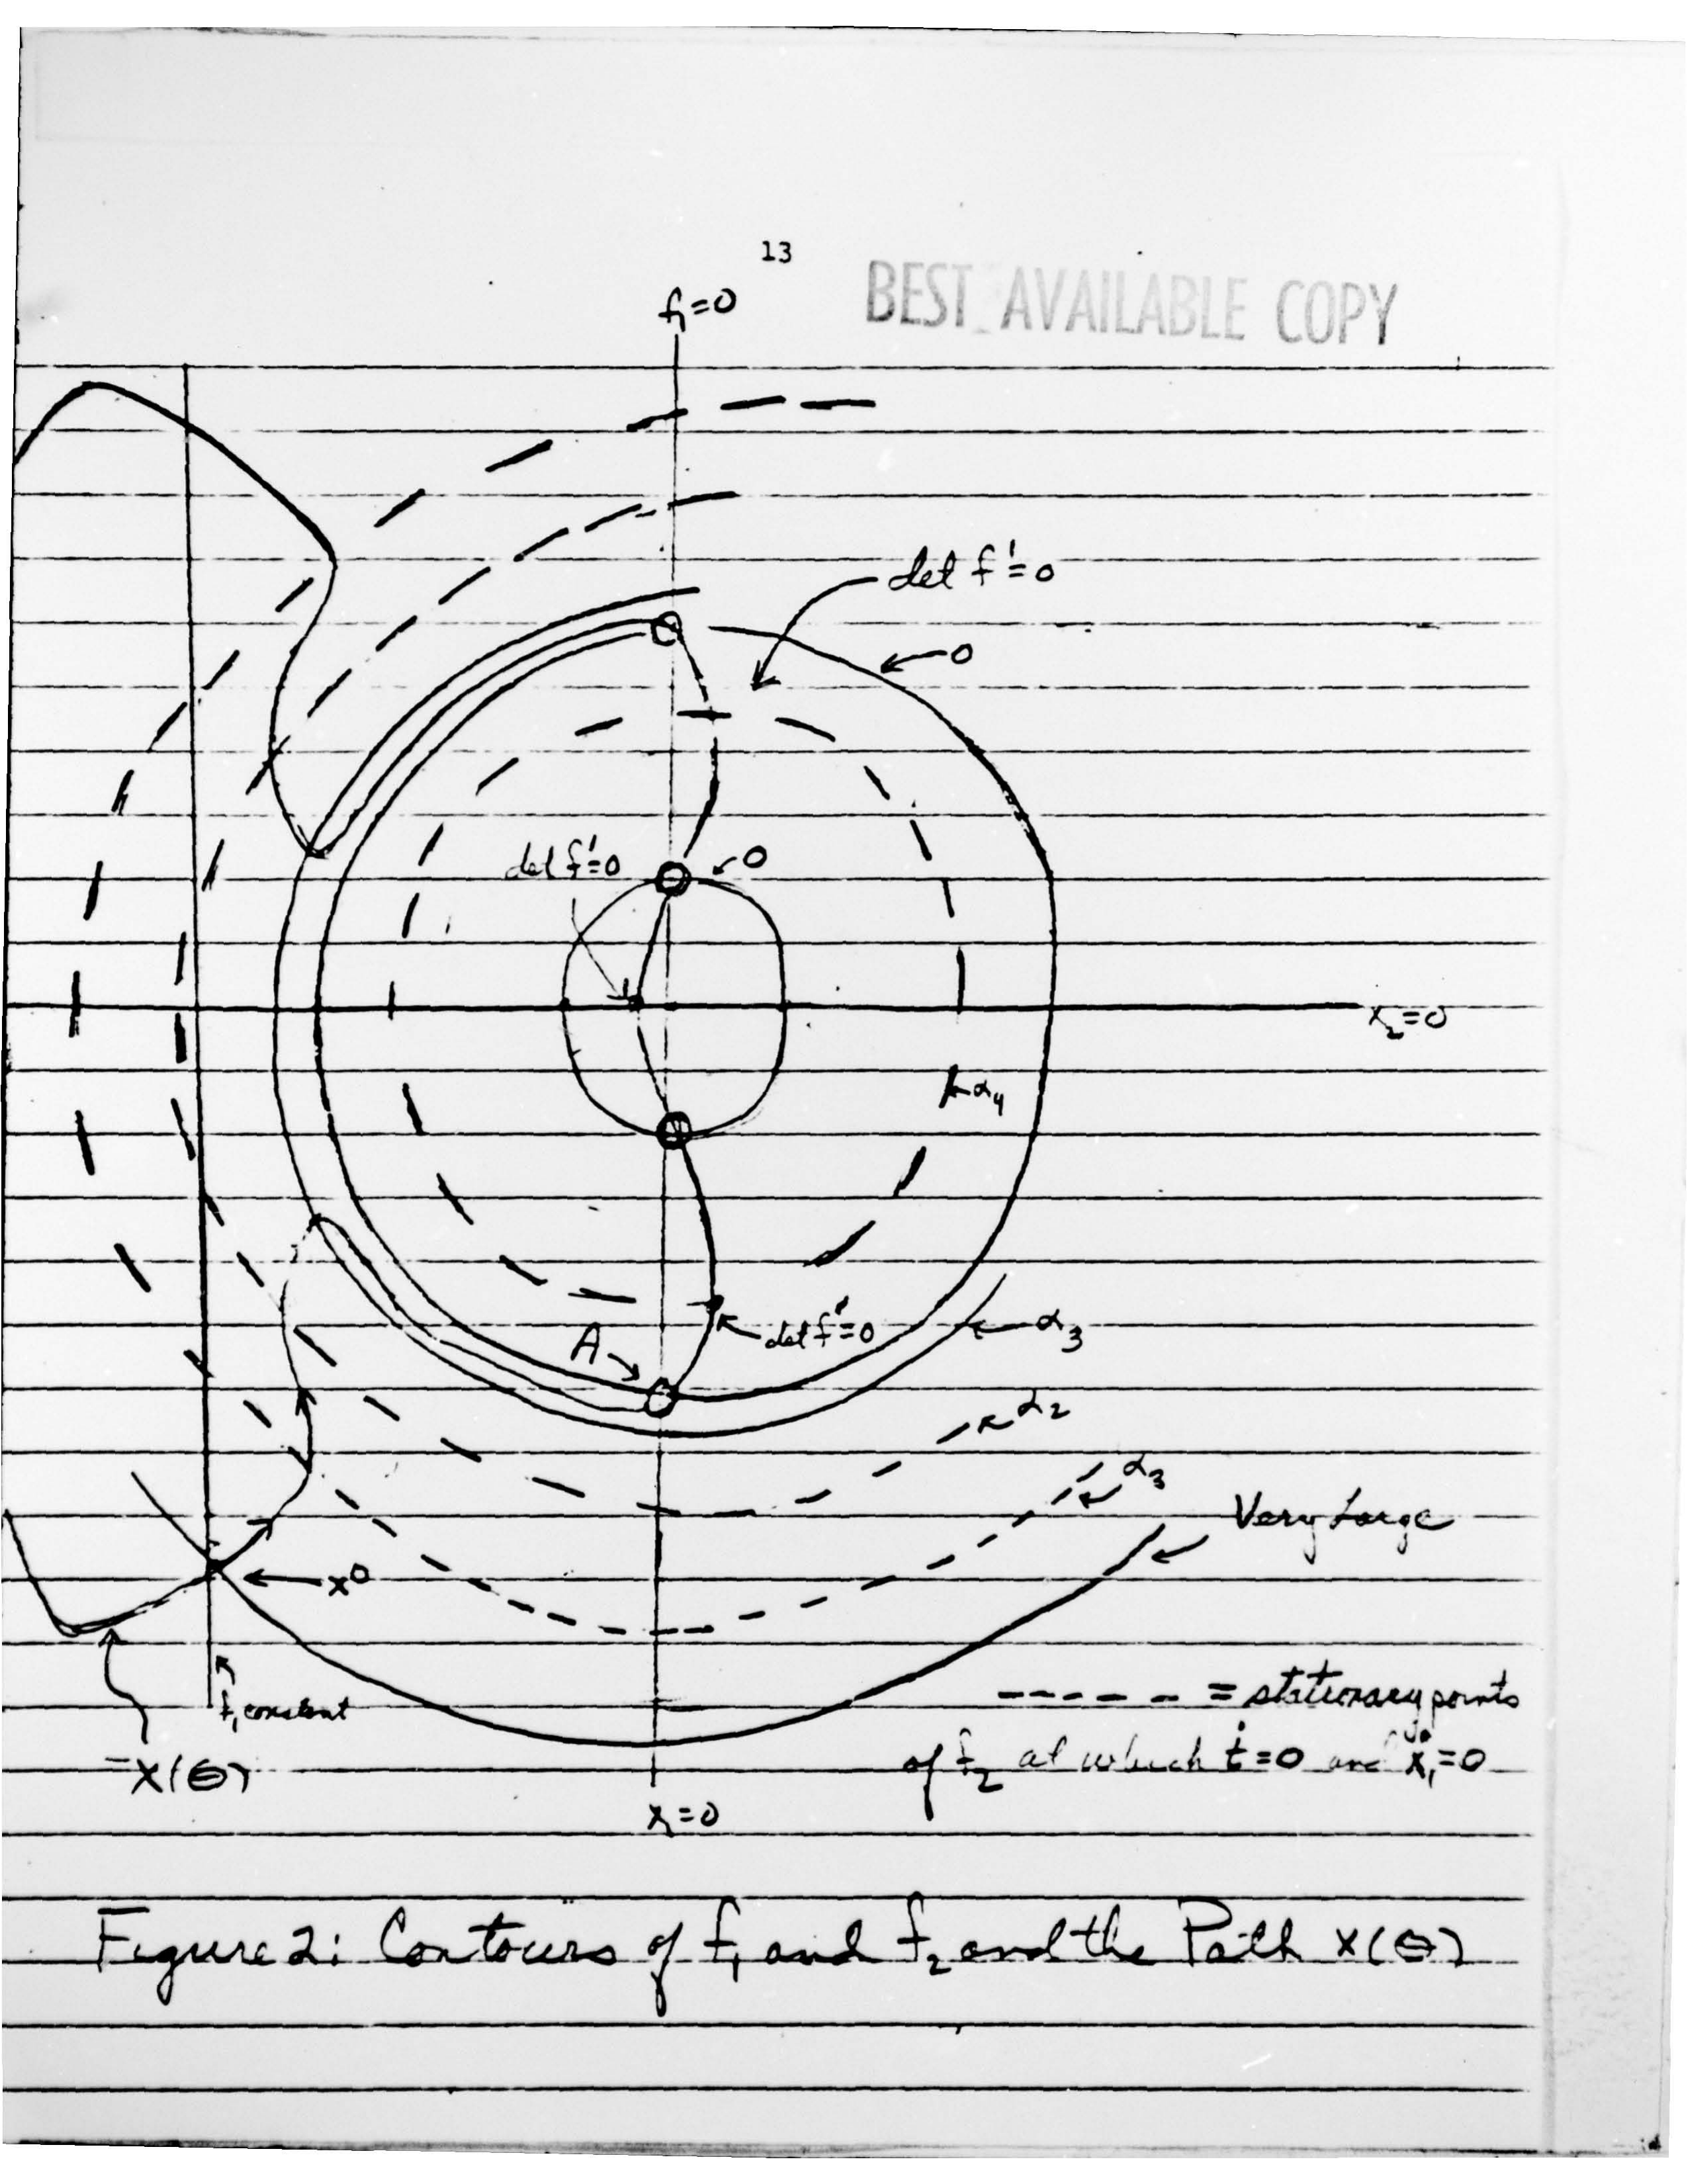 13
BEST AVAILABLE COPY
f₁=0
det f'=0
0
det f'=0
0
x₂=0
α₄
A
det f'=0
α₃
α₂
α₃
Very Large
x⁰
f₁ constant
----- = stationary points
of f₂ at which ṫ=0 and ẋ₁=0
X(θ)
x₁=0
Figure 2: Contours of f₁ and f₂ and the Path x(θ)